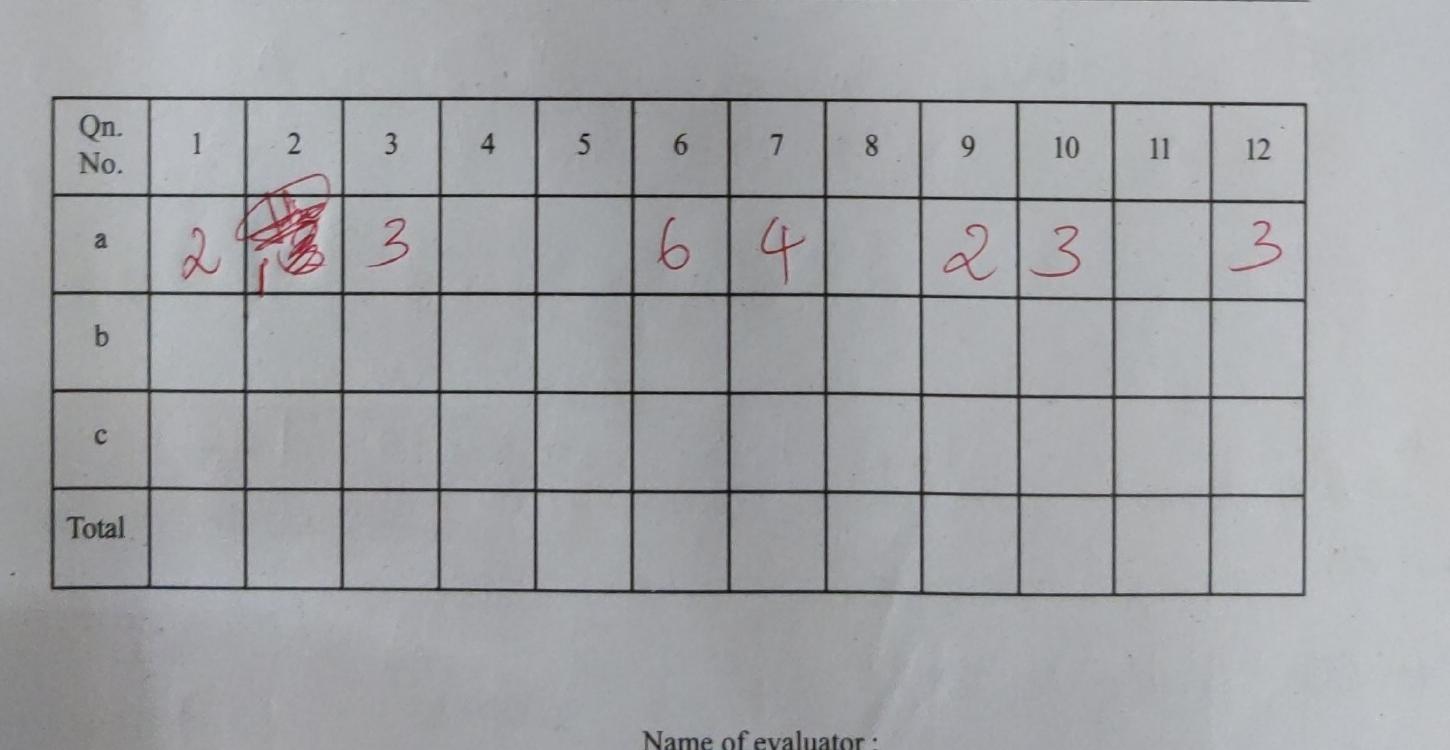 Qn. No. 1 2 3 4 5 6 7 8 9 10 11 12
a 2 1 3 6 4 2 3 3
b
c
Total
Name of evaluator :